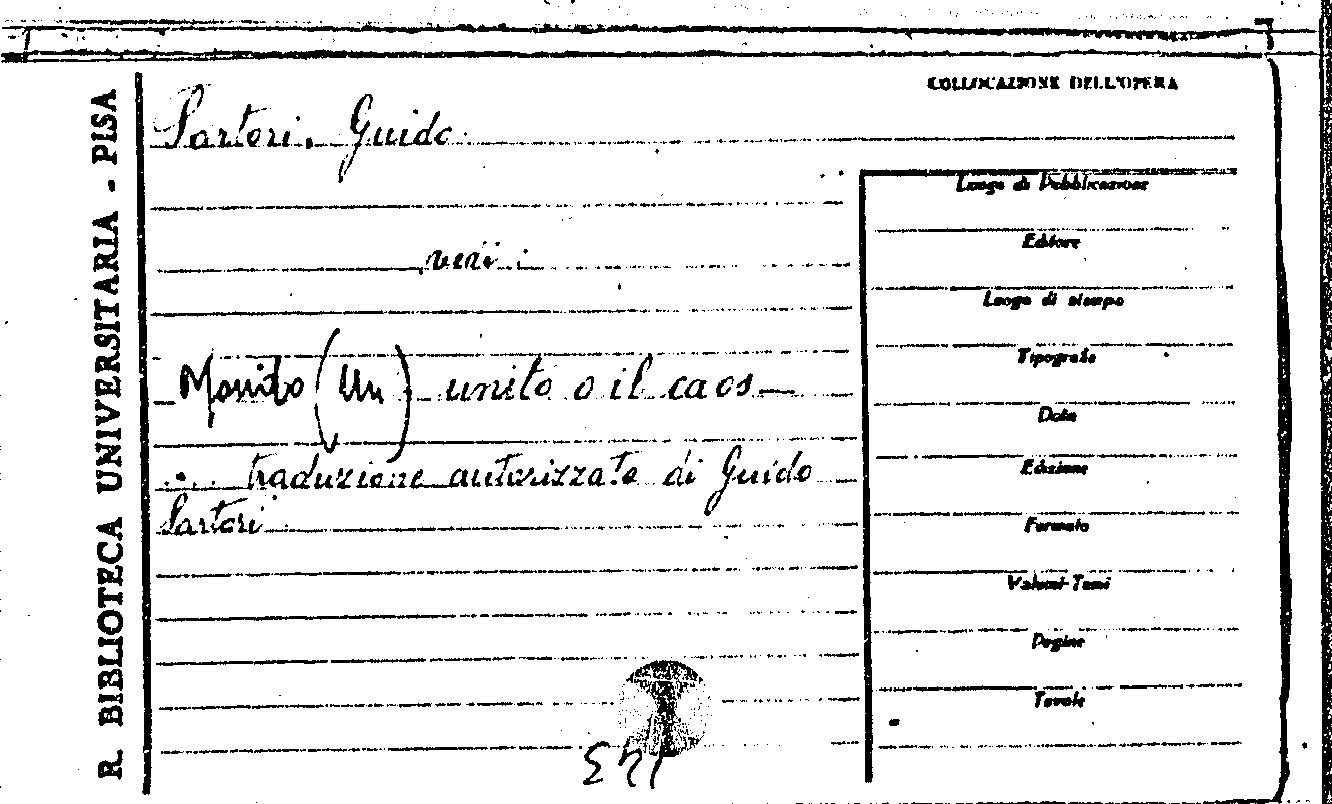 R. BIBLIOTECA UNIVERSITARIA - PISA
COLLOCAZIONE DELL'OPERA
Sartori, Guido
vedi:
Mondo (Un) unito o il caos
... traduzione autorizzata di Guido
Sartori
Luogo di Pubblicazione
Editore
Luogo di stampa
Tipografo
Data
Edizione
Formato
Volumi-Tomi
Pagine
Tavole